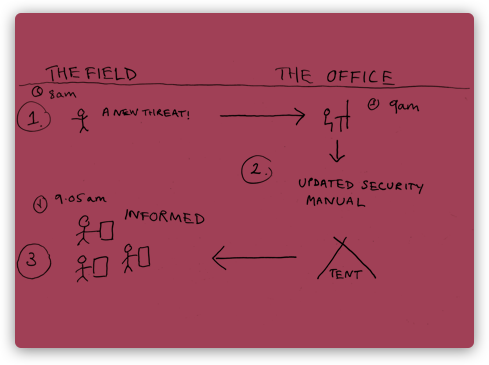 THE FIELD
THE OFFICE
8am
1.
A NEW THREAT!
9am
2.
UPDATED SECURITY
MANUAL
9.05am
INFORMED
3
TENT